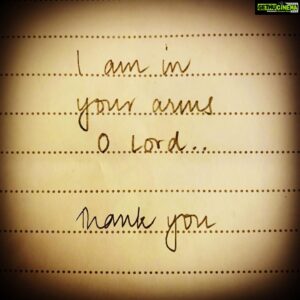 GETHUCINEMA
I am in
your arms
O Lord..
Thank you